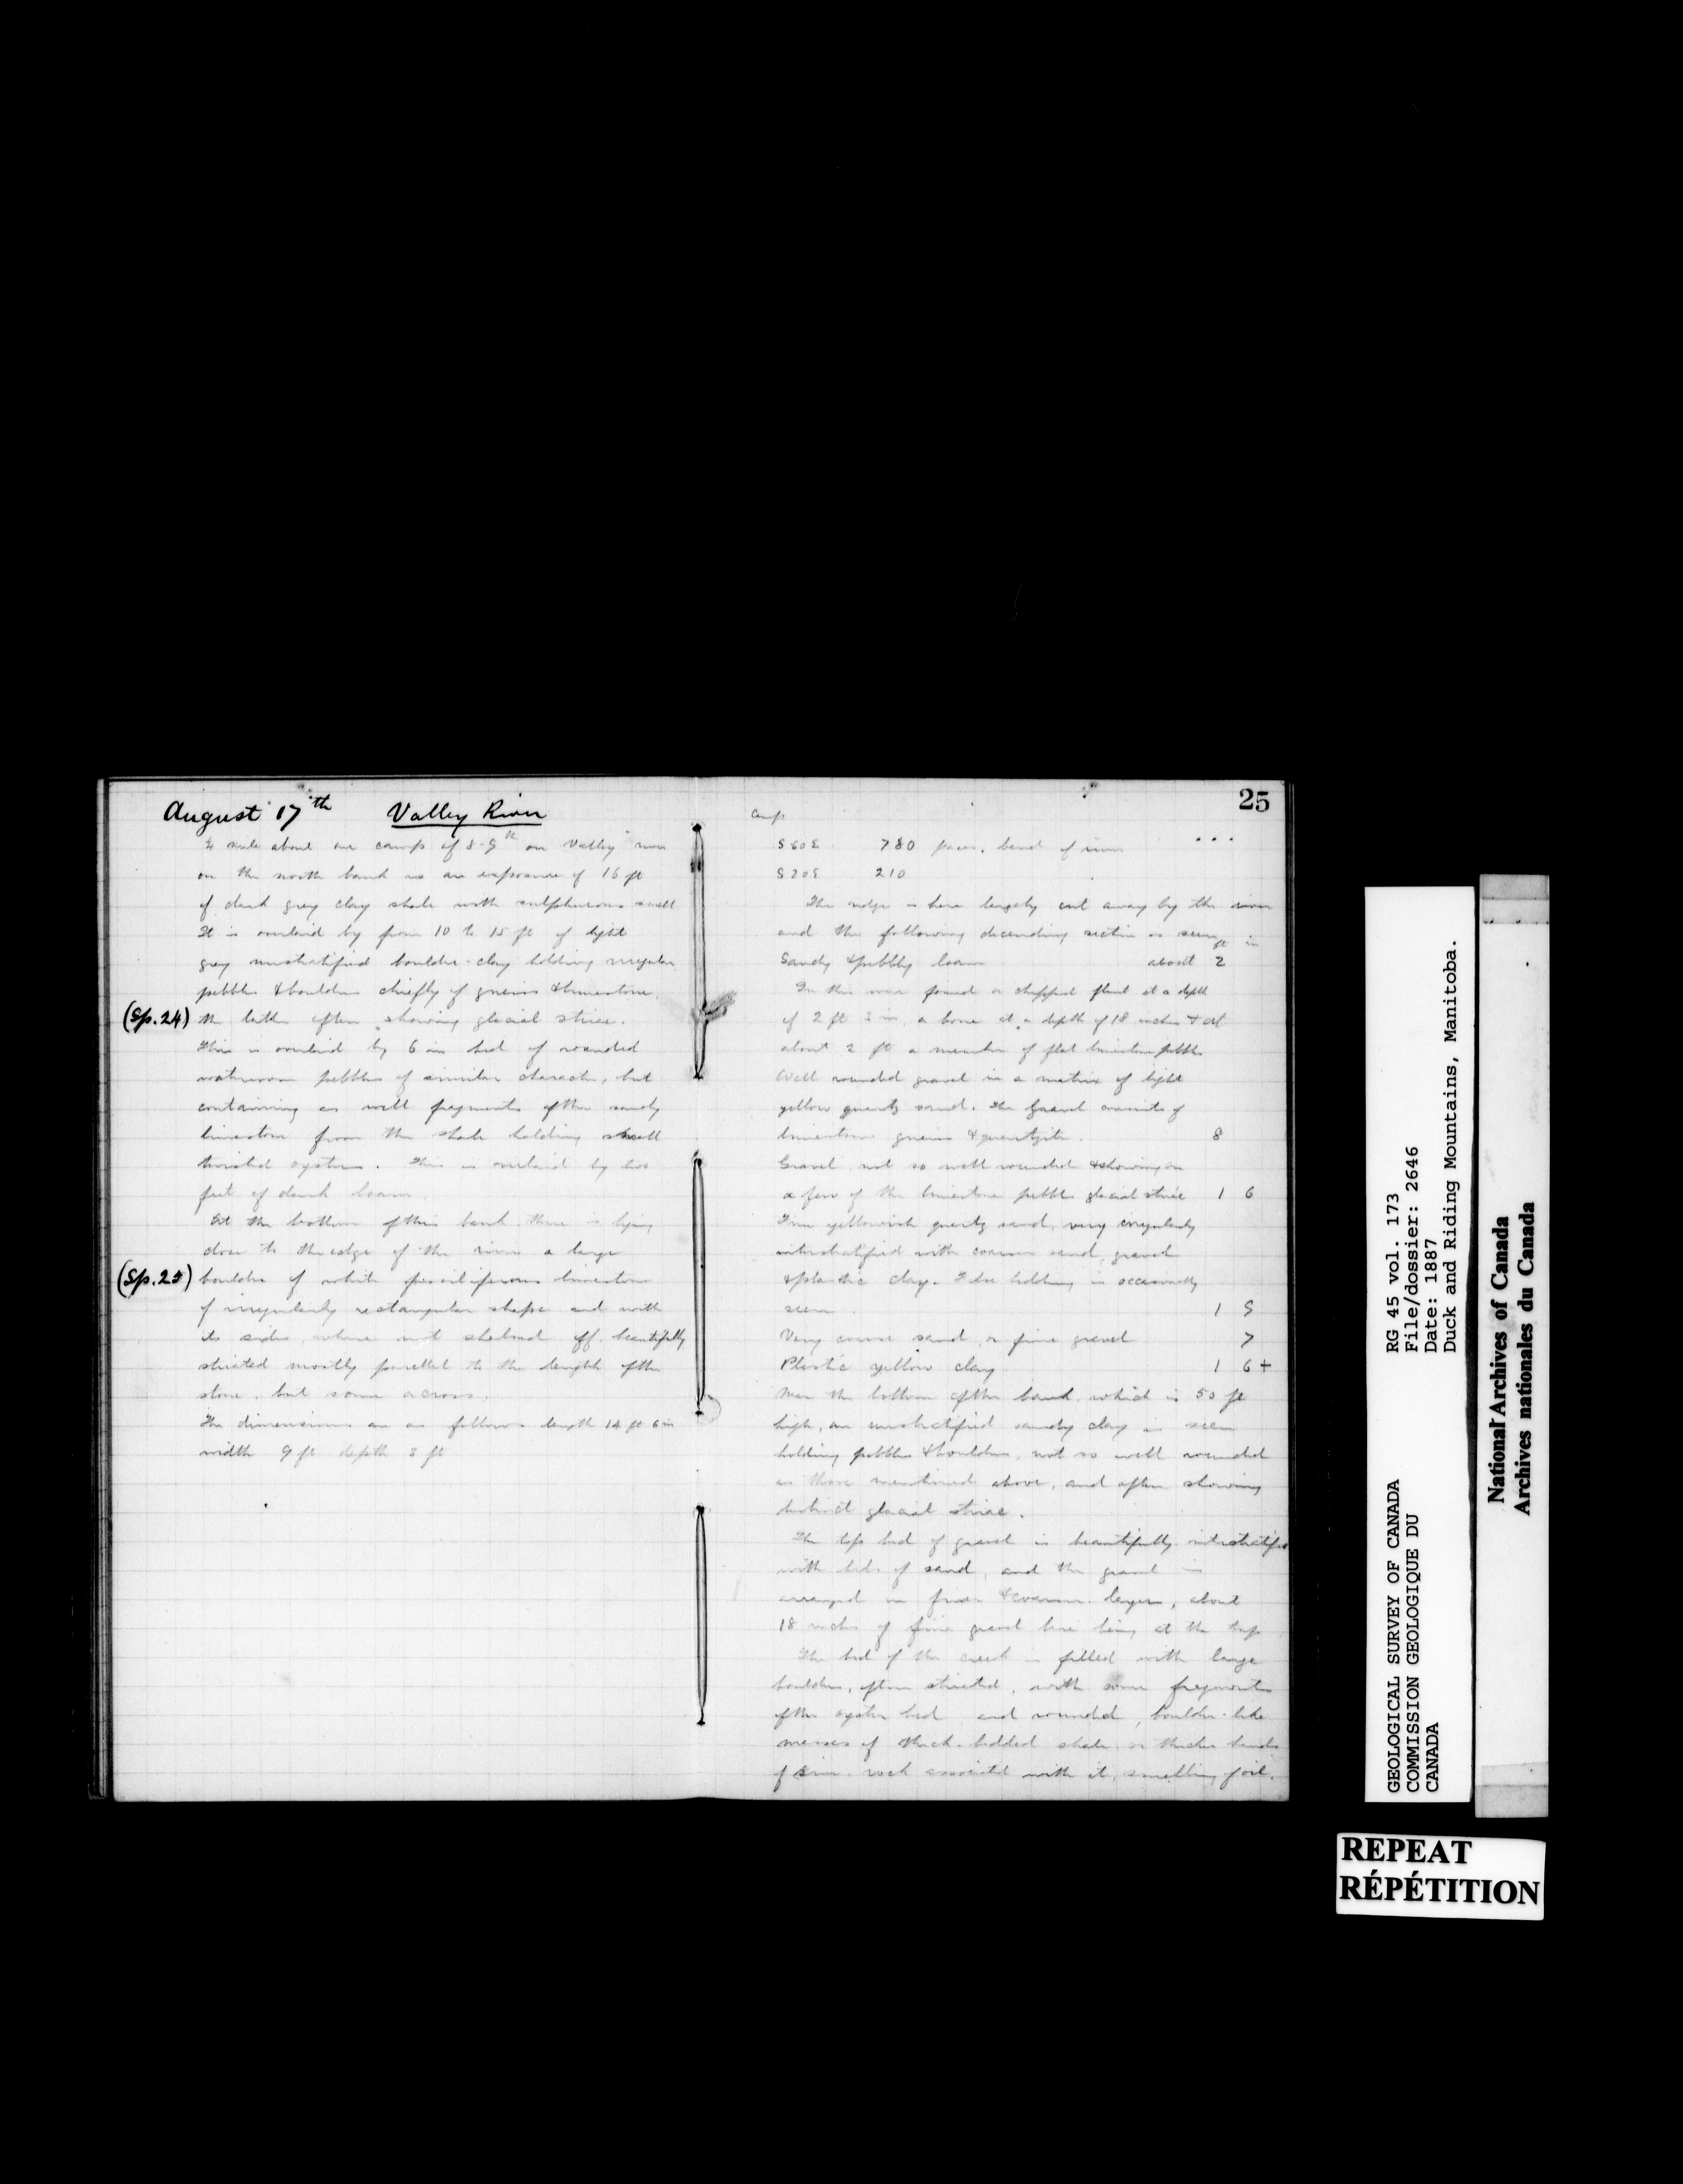 August 17th Valley River
¼ mile above our camp of 8-9th on Valley river
on the north bank is an exposure of 16 ft
of dark grey clay shale with sulphurous smell
It is overlaid by from 10 to 15 ft of light
grey unstratified boulder-clay holding irregular
pebbles & boulders chiefly of gneiss & limestone,
(Sp.24) the latter often showing glacial striae.
This is overlaid by 6 in bed of rounded
waterworn pebbles of similar character, but
containing as well fragments of the sandy
limestone from the shale holding small
twisted oysters. This is overlaid by two
feet of dark loam.
At the bottom of this bank there is lying
close to the edge of the river a large
(Sp.25) boulder of white fossiliferous limestone
of irregularly rectangular shape and with
its sides, where not shelved off, beautifully
striated mostly parallel to the length of the
stone, but some across.
The dimensions are as follows length 14 ft 6 in
width 9 ft depth 3 ft
25
Camp
S60E 780 paces, bend of river . . .
S20E 210
The ridge is here largely cut away by the river
and the following decending section is seen
ft in
Sandy & pebbly loam about 2
In this was found a chipped flint at a depth
of 2 ft 3 in, a bone at a depth of 18 inches & at
about 2 ft a number of flat limestone pebbles
Well rounded gravel in a matrix of light
yellow quartz sand. The gravel consists of
limestone gneiss & quartzite. 8
Gravel not so well rounded & showing on
a few of the limestone pebbles glacial striae 1 6
Fine yellowish quartz sand, very irregularly
interstratified with coarser sand, gravel
& plastic clay. False bedding is occasionally
seen 1 9
Very coarse sand, or fine gravel 7
Plastic yellow clay 1 6+
Near the bottom of the bank, which is 50 ft
high, an unstratified sandy clay is seen
holding pebbles & boulders, not so well rounded
as those mentioned above, and often showing
distinct glacial striae.
The top bed of gravel is beautifully interstratified
with beds of sand, and the gravel is
arranged in finer & coarser layers, about
18 inches of fine gravel here being at the top
The bed of the creek is filled with large
boulders, often striated, with some fragments
of the oyster bed and rounded, boulder-like
masses of thick-bedded shale or thicker bands
of rock associated with it, smelling of oil.
GEOLOGICAL SURVEY OF CANADA
COMMISSION GEOLOGIQUE DU
CANADA
RG 45 vol. 173
File/dossier: 2646
Date: 1887
Duck and Riding Mountains, Manitoba.
National Archives of Canada
Archives nationales du Canada
REPEAT
RÉPÉTITION